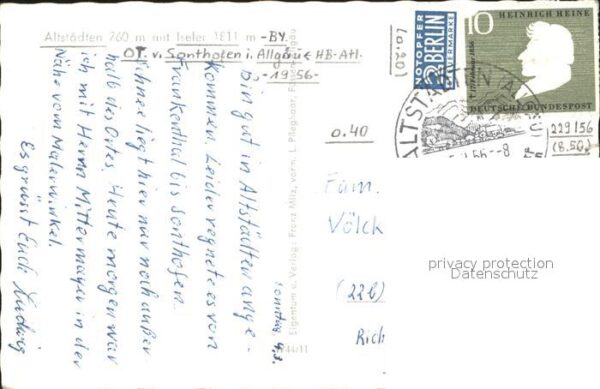 Altstädten 760 m mit Iseler 1811 m -BY.
OT. v. Sonthofen i. Allgäu HB-Atl.
-1956-
Sonntag 4.3.
Bin gut in Altstädten ange-
kommen. Leider regnete es von
Frankenthal bis Sonthofen.
Schnee liegt hier nur noch außer
halb des Ortes. Heute morgen war
ich mit Herrn Mittermayer in der
Nähe vom Malerwinkel.
Es grüsst Euch Ludwig
Eigentum u. Verlag: Franz Milz, vorm. L. Pfleghaar,
44/11
(0.20)
NOTOPFER
2 BERLIN
STEUERMARKE
10 HEINRICH HEINE
DEUTSCHE BUNDESPOST
ALTSTÄDTEN
229/56
(8.50)
0.40
Fam.
Völck
(22b)
Rich
privacy protection
Datenschutz